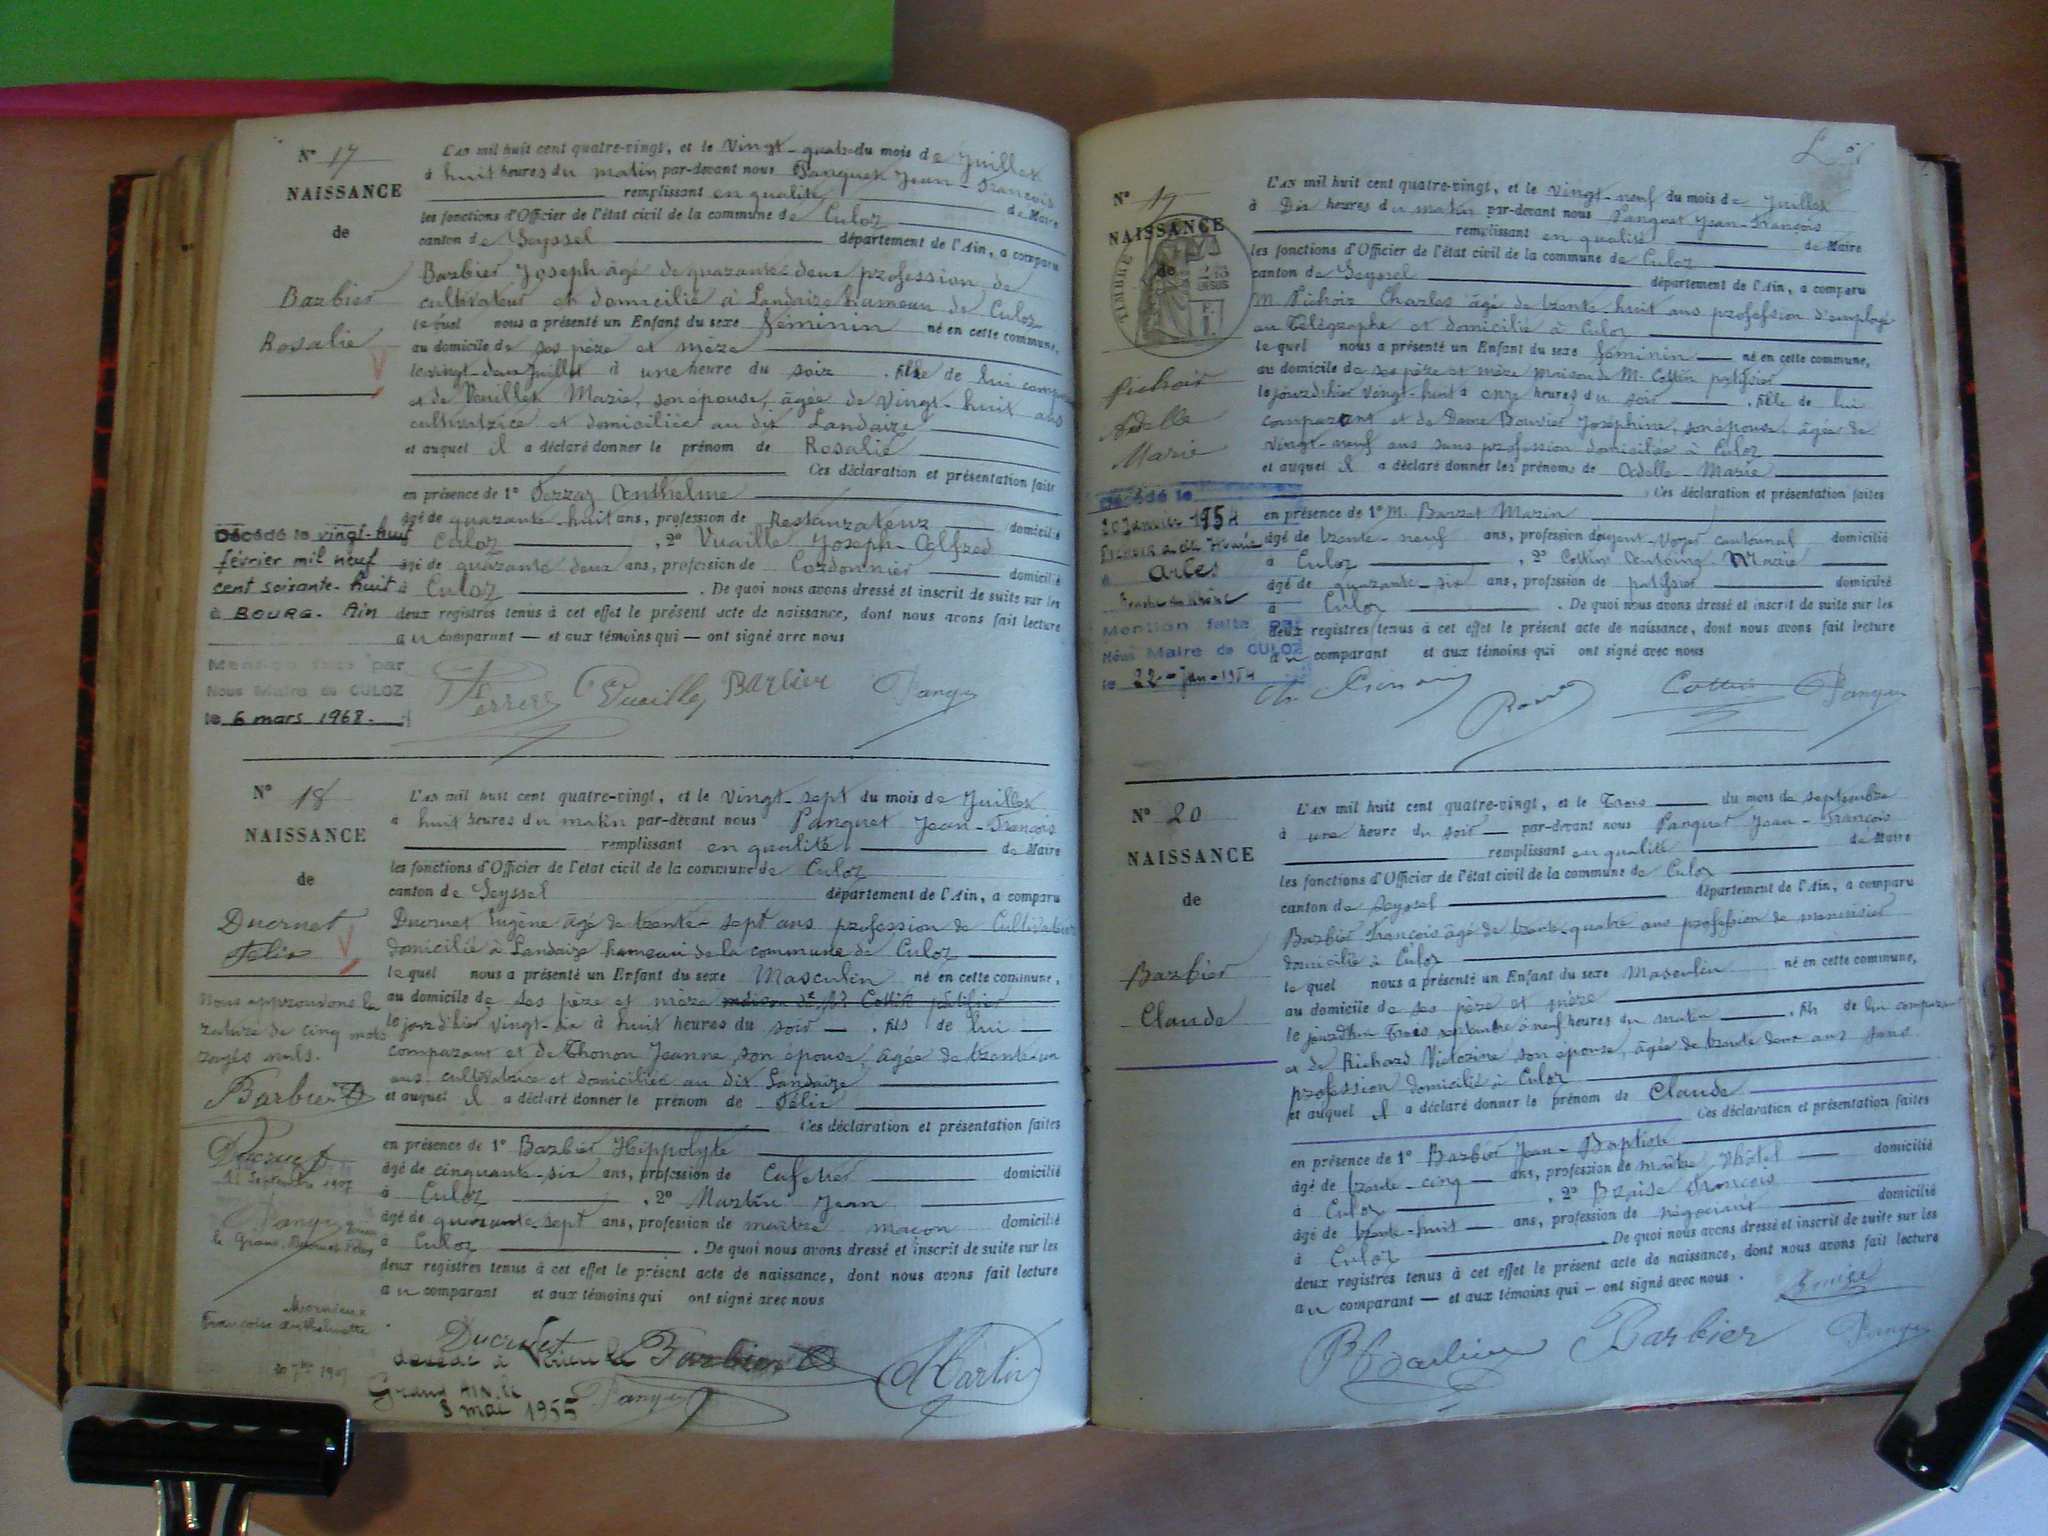 N° 17
NAISSANCE
de
Barbier
Rosalie
L'AN mil huit cent quatre-vingt, et le Vingt-quatre du mois de Juillet
à huit heures du matin par-devant nous Panguet Jean-François
remplissant en qualité de Maire
les fonctions d'Officier de l'état civil de la commune de Culoz
canton de Seyssel département de l'Ain, a comparu
Barbier Joseph âgé de quarante deux profession de
cultivateur et domicilié à Landaize hameau de Culoz
le quel nous a présenté un Enfant du sexe féminin né en cette commune,
au domicile de ses père et mère
le vingt-deux Juillet à une heure du soir , fille de lui comparant
et de Vuillet Marie, son épouse, âgée de Vingt-huit ans
cultivatrice et domiciliée au dit Landaize
et auquel il a déclaré donner le prénom de Rosalie
Ces déclaration et présentation faite
en présence de 1° Anthelme
âgé de quarante-huit ans, profession de Restaurateur domicilié
Culoz , 2° Vuaille Joseph-Alfred
âgé de quarante deux ans, profession de Cordonnier domicilié
à Culoz . De quoi nous avons dressé et inscrit de suite sur les
deux registres tenus à cet effet le présent acte de naissance, dont nous avons fait lecture
au comparant — et aux témoins qui — ont signé avec nous
Décédé le vingt-huit
février mil neuf
cent soixante-huit
à BOURG. Ain
Mention faite par
Nous Maire de CULOZ
le 6 mars 1968.
Vuaille Barbier Panguet
N° 18
NAISSANCE
de
Ducruet
Félix
L'AN mil huit cent quatre-vingt, et le Vingt-sept du mois de Juillet
à huit heures du matin par-devant nous Panguet Jean-François
remplissant en qualité de Maire
les fonctions d'Officier de l'état civil de la commune de Culoz
canton de Seyssel département de l'Ain, a comparu
Ducruet Eugène âgé de trente-sept ans profession de Cultivateur
domicilié à Landaize hameau de la commune de Culoz
le quel nous a présenté un Enfant du sexe Masculin né en cette commune,
au domicile de ses père et mère maison de Mr Cottin pâtissier
le jour d'hier vingt-six à huit heures du soir — , fils de lui —
comparant et de Thonon Jeanne, son épouse, âgée de trente-un
ans cultivatrice et domiciliée au dit Landaize
et auquel il a déclaré donner le prénom de Félix
Ces déclaration et présentation faites
en présence de 1° Barbier Hippolyte
âgé de cinquante-six ans, profession de Cafetier domicilié
à Culoz , 2° Martin Jean
âgé de quarante-sept ans, profession de maître maçon domicilié
à Culoz . De quoi nous avons dressé et inscrit de suite sur les
deux registres tenus à cet effet le présent acte de naissance, dont nous avons fait lecture
au comparant et aux témoins qui ont signé avec nous
Nous approuvons la
rature de cinq mots
rayés nuls.
Barbier
Ducruet
Septembre 1907
Panguet
Mornieux
Françoise Anthelmette
1907
Ducruet Barbier Martin
décédé à Virieu le
Grand Ain, le
3 mai 1955
Panguet
N° 19
NAISSANCE
de
TIMBRE
Pichoir
Adelle
Marie
L'AN mil huit cent quatre-vingt, et le vingt-neuf du mois de Juillet
à Dix heures du matin par-devant nous Panguet Jean-François
remplissant en qualité de Maire
les fonctions d'Officier de l'état civil de la commune de Culoz
canton de Seyssel département de l'Ain, a comparu
M. Pichoir Charles âgé de trente-huit ans profession d'employé
au Télégraphe et domicilié à Culoz
le quel nous a présenté un Enfant du sexe féminin né en cette commune,
au domicile de ses père et mère maison de M. Cottin pâtissier
le jour d'hier vingt-huit à onze heures du soir , fille de lui
comparant et de Dame Bouvier Joséphine, son épouse, âgée de
vingt-neuf ans sans profession domiciliée à Culoz
et auquel il a déclaré donner les prénoms de Adelle-Marie
Ces déclaration et présentation faites
en présence de 1° M. Barret Marin
âgé de trente-neuf ans, profession d'agent-voyer cantonal domicilié
à Culoz , 2° Cottin Antoine Marie
âgé de quarante-six ans, profession de patissier domicilié
à Culoz . De quoi nous avons dressé et inscrit de suite sur les
deux registres tenus à cet effet le présent acte de naissance, dont nous avons fait lecture
au comparant et aux témoins qui ont signé avec nous
décédé le
20 Janvier 1954
à Arles
Mention faite par
Nous Maire de CULOZ
le 22-jan-1954
Cottin Panguet
N° 20
NAISSANCE
de
Barbier
Claude
L'AN mil huit cent quatre-vingt, et le Trois du mois de septembre
à une heure du soir — par-devant nous Panguet Jean-François
remplissant en qualité de Maire
les fonctions d'Officier de l'état civil de la commune de Culoz
canton de Seyssel département de l'Ain, a comparu
Barbier François âgé de trente-quatre ans profession de menuisier
domicilié à Culoz
le quel nous a présenté un Enfant du sexe Masculin né en cette commune,
au domicile de ses père et mère
le jourd'hui Trois septembre à neuf heures du matin , fils de lui comparant
et de Richard Victorine son épouse, âgée de trente deux ans sans
profession domiciliée à Culoz
et auquel il a déclaré donner le prénom de Claude
Ces déclaration et présentation faites
en présence de 1° Barbier Jean-Baptiste
âgé de trente-cinq — ans, profession de maître d'hôtel — domicilié
à Culoz , 2° Braise François
âgé de trente-huit — ans, profession de négociant domicilié
à Culoz . De quoi nous avons dressé et inscrit de suite sur les
deux registres tenus à cet effet le présent acte de naissance, dont nous avons fait lecture
au comparant — et aux témoins qui — ont signé avec nous.
Barbier Barbier Panguet